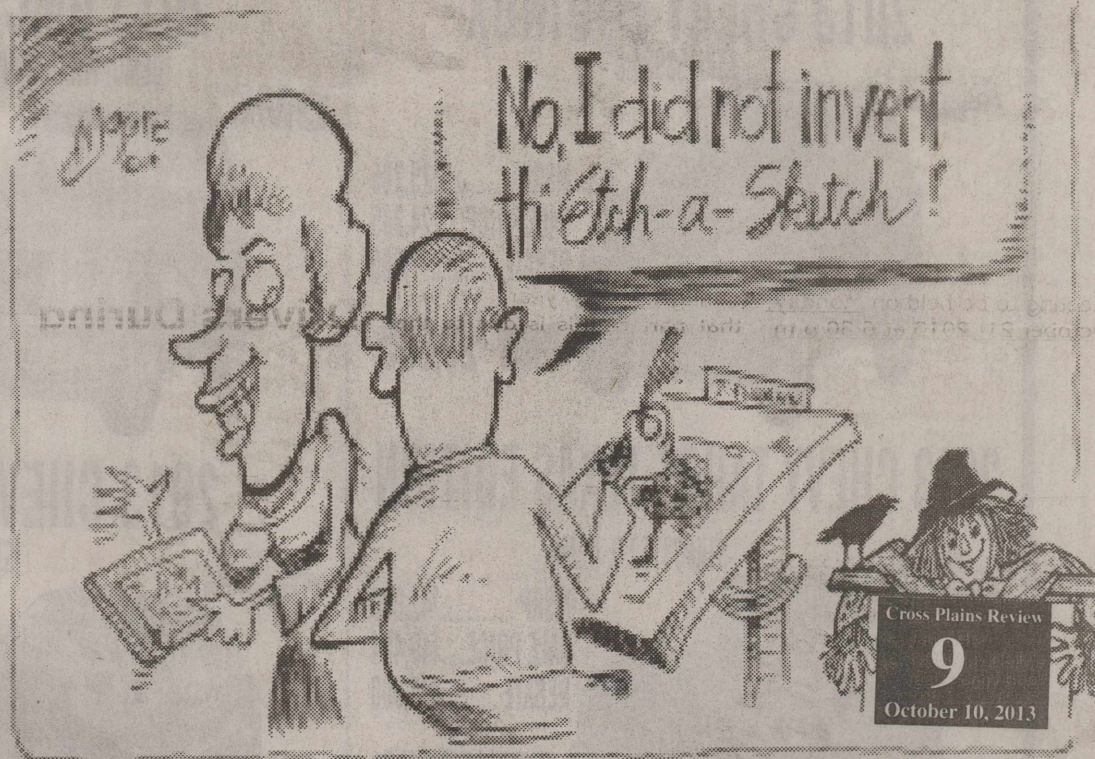 No, I did not invent
thi Etch-a-Sketch!
Moore
Cross Plains Review
9
October 10, 2013